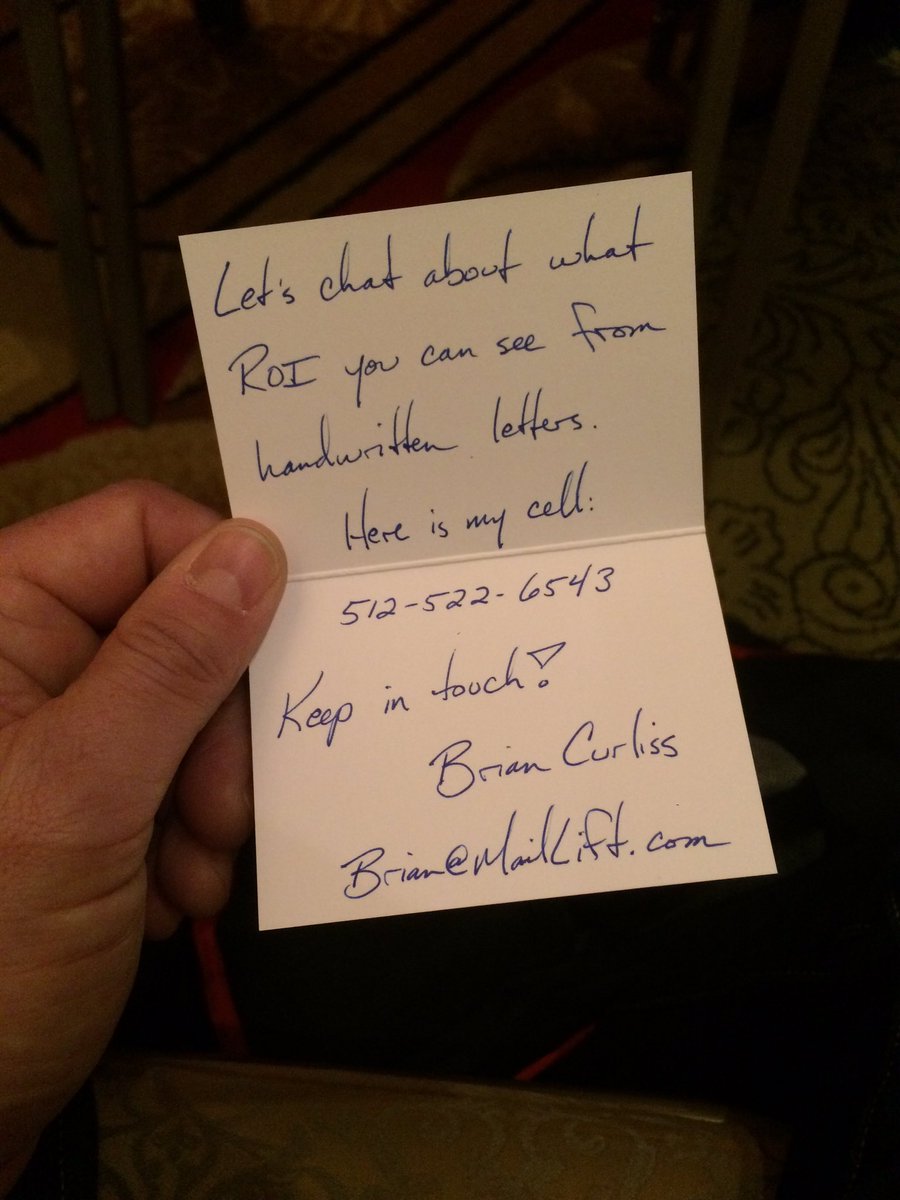 Let's chat about what
ROI you can see from
handwritten letters.
Here is my cell:
512-522-6543
Keep in touch!
Brian Curliss
Brian@MailLift.com